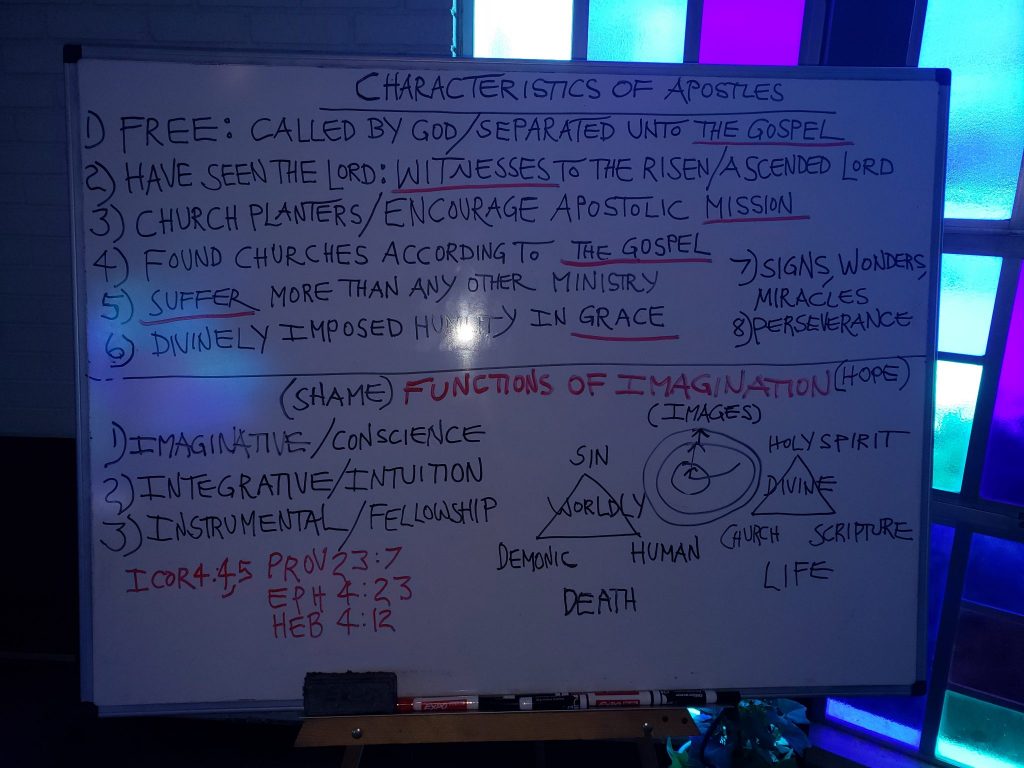 CHARACTERISTICS OF APOSTLES
1) FREE: CALLED BY GOD/SEPARATED UNTO THE GOSPEL
2) HAVE SEEN THE LORD: WITNESSES TO THE RISEN/ASCENDED LORD
3) CHURCH PLANTERS/ENCOURAGE APOSTOLIC MISSION
4) FOUND CHURCHES ACCORDING TO THE GOSPEL
5) SUFFER MORE THAN ANY OTHER MINISTRY
6) DIVINELY IMPOSED HUMILITY IN GRACE
7) SIGNS, WONDERS,
MIRACLES
8) PERSEVERANCE
(SHAME) FUNCTIONS OF IMAGINATION (HOPE)
1) IMAGINATIVE/CONSCIENCE
2) INTEGRATIVE/INTUITION
3) INSTRUMENTAL/FELLOWSHIP
I COR 4.4,5 PROV 23:7
EPH 4:23
HEB 4:12
(IMAGES)
SIN
WORLDLY
DEMONIC HUMAN
DEATH
HOLY SPIRIT
DIVINE
CHURCH SCRIPTURE
LIFE